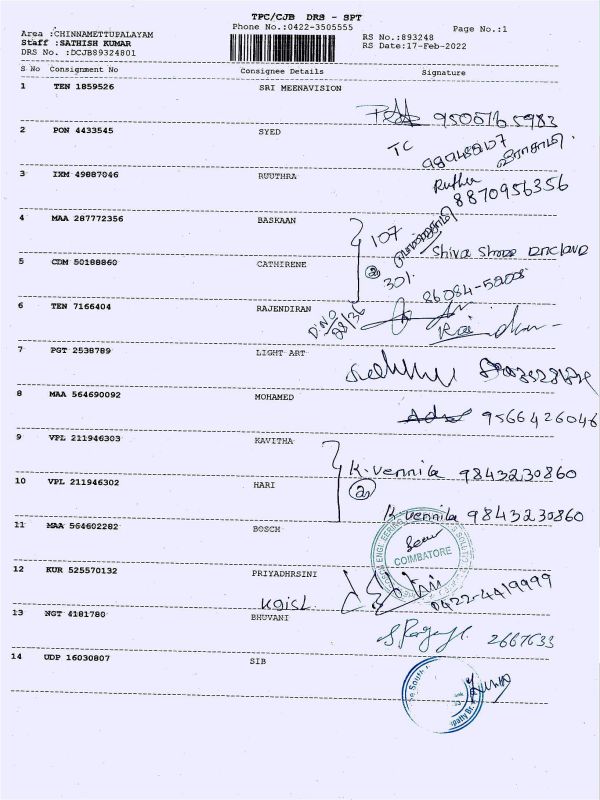 TPC/CJB DRS - SPT
Phone No.:0422-3505555
Page No.:1
Area :CHINNAMETTUPALAYAM
Staff :SATHISH KUMAR
DRS No. :DCJB89324801
RS No.:893248
RS Date:17-Feb-2022
S No Consignment No Consignee Details Signature
1 TEN 1859526 SRI MEENAVISION
9505165983
2 PON 4433545 SYED
TC
3 IXM 49887046 RUUTHRA
Ruthra
8870956356
4 MAA 287772356 BASKAAN
107
Shiva Shree Enclave
5 CDM 50188860 CATHIRENE
301
86084-52008
6 TEN 7166404 RAJENDIRAN
D.No
28/36
7 PGT 2538789 LIGHT ART
8 MAA 564690092 MOHAMED
9566426046
9 VPL 211946303 KAVITHA
K.vennila 9843230860
10 VPL 211946302 HARI
K.vennila 9843230860
11 MAA 564602282 BOSCH
COIMBATORE
12 KUR 525570132 PRIYADHRSINI
KGISL
0422-4419999
13 NGT 4181780 BHUVANI
2667633
14 UDP 16030807 SIB